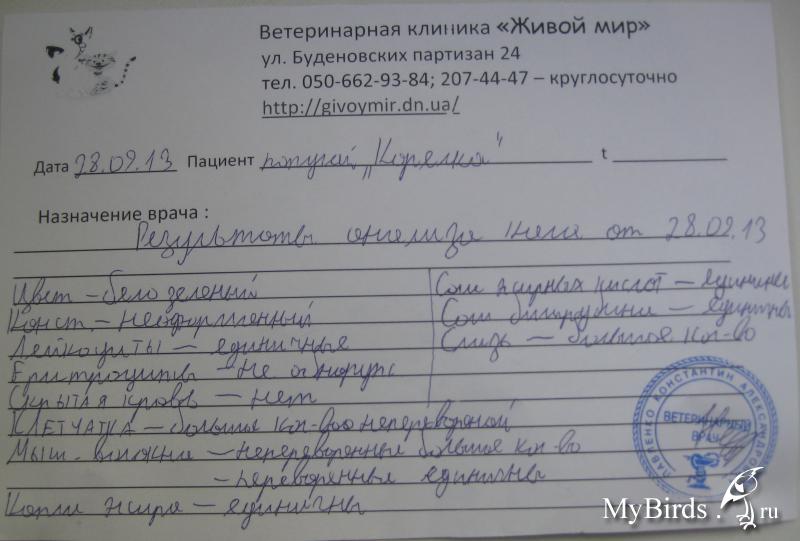 Ветеринарная клиника «Живой мир»
ул. Буденовских партизан 24
тел. 050-662-93-84; 207-44-47 – круглосуточно
http://givoymir.dn.ua/
Дата 28.09.13 Пациент попугай „Корелка“ t
Назначение врача :
Результаты анализа кала от 28.09.13
Цвет – бело зеленый
Конст. – неоформленный
Лейкоциты – единичные
Еритроциты – не обнаруж
Скрытая кровь – нет
Клетчатка – большое кол-во неперевареной
Мыш. – непереваренные большое кол-во
– переваренные единичны
Капли жира – единичны
Соли жирных кислот – единичны
Соли билирубина – единичны
Слизь – большое кол-во
ПАВЛЕНКО КОНСТАНТИН АЛЕКСАНДРОВИЧ
ВЕТЕРИНАРНЫЙ
ВРАЧ
MyBirds.ru